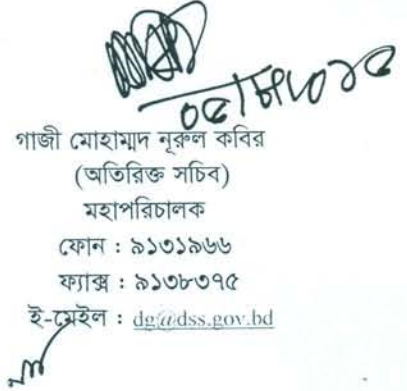 গাজী মোহাম্মদ নূরুল কবির
(অতিরিক্ত সচিব)
মহাপরিচালক
ফোন : ৯১৩১৯৬৬
ফ্যাক্স : ৯১৩৮৩৭৫
ই-মেইল : dg@dss.gov.bd